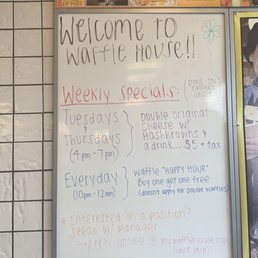 Welcome to
Waffle House!!
Weekly Specials:
(DINE-IN
ORDERS
ONLY)
Tuesdays
&
Thursdays
(4pm-7pm)
Double Original
Cheese w/
Hashbrowns &
a drink.... $5 + tax
Everyday
(10pm-12am)
Waffle "HAPPY HOUR"
Buy one get one free
(doesn't apply for Double Waffles)
* Interested in a position?
Speak w/ Manager
Apply online =